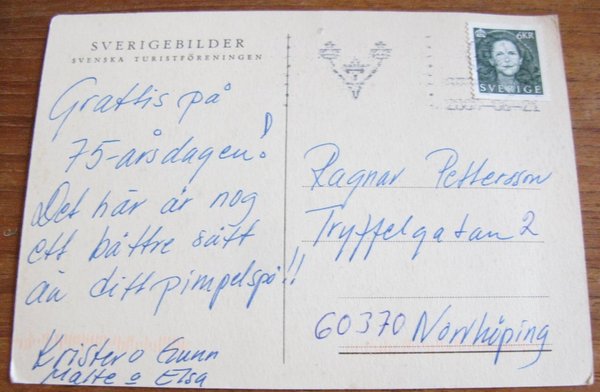 SVERIGEBILDER
SVENSKA TURISTFÖRENINGEN
Grattis på
75-årsdagen!
Det här är nog
ett bättre sätt
än ditt pimpelspö!!
Krister o Gunn
Malte o Elsa
6KR
SVERIGE
Ragnar Pettersson
Tryffelgatan 2
60370 Norrköping